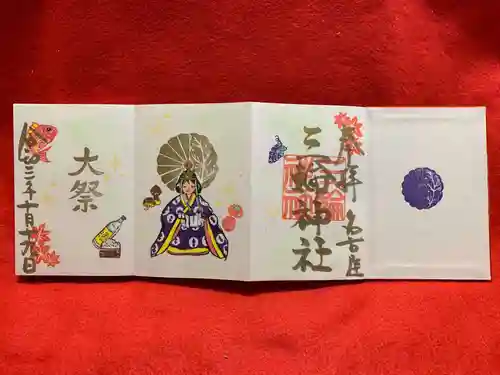 奉拝 名古屋
三輪神社
大祭
令和三年十月十九日